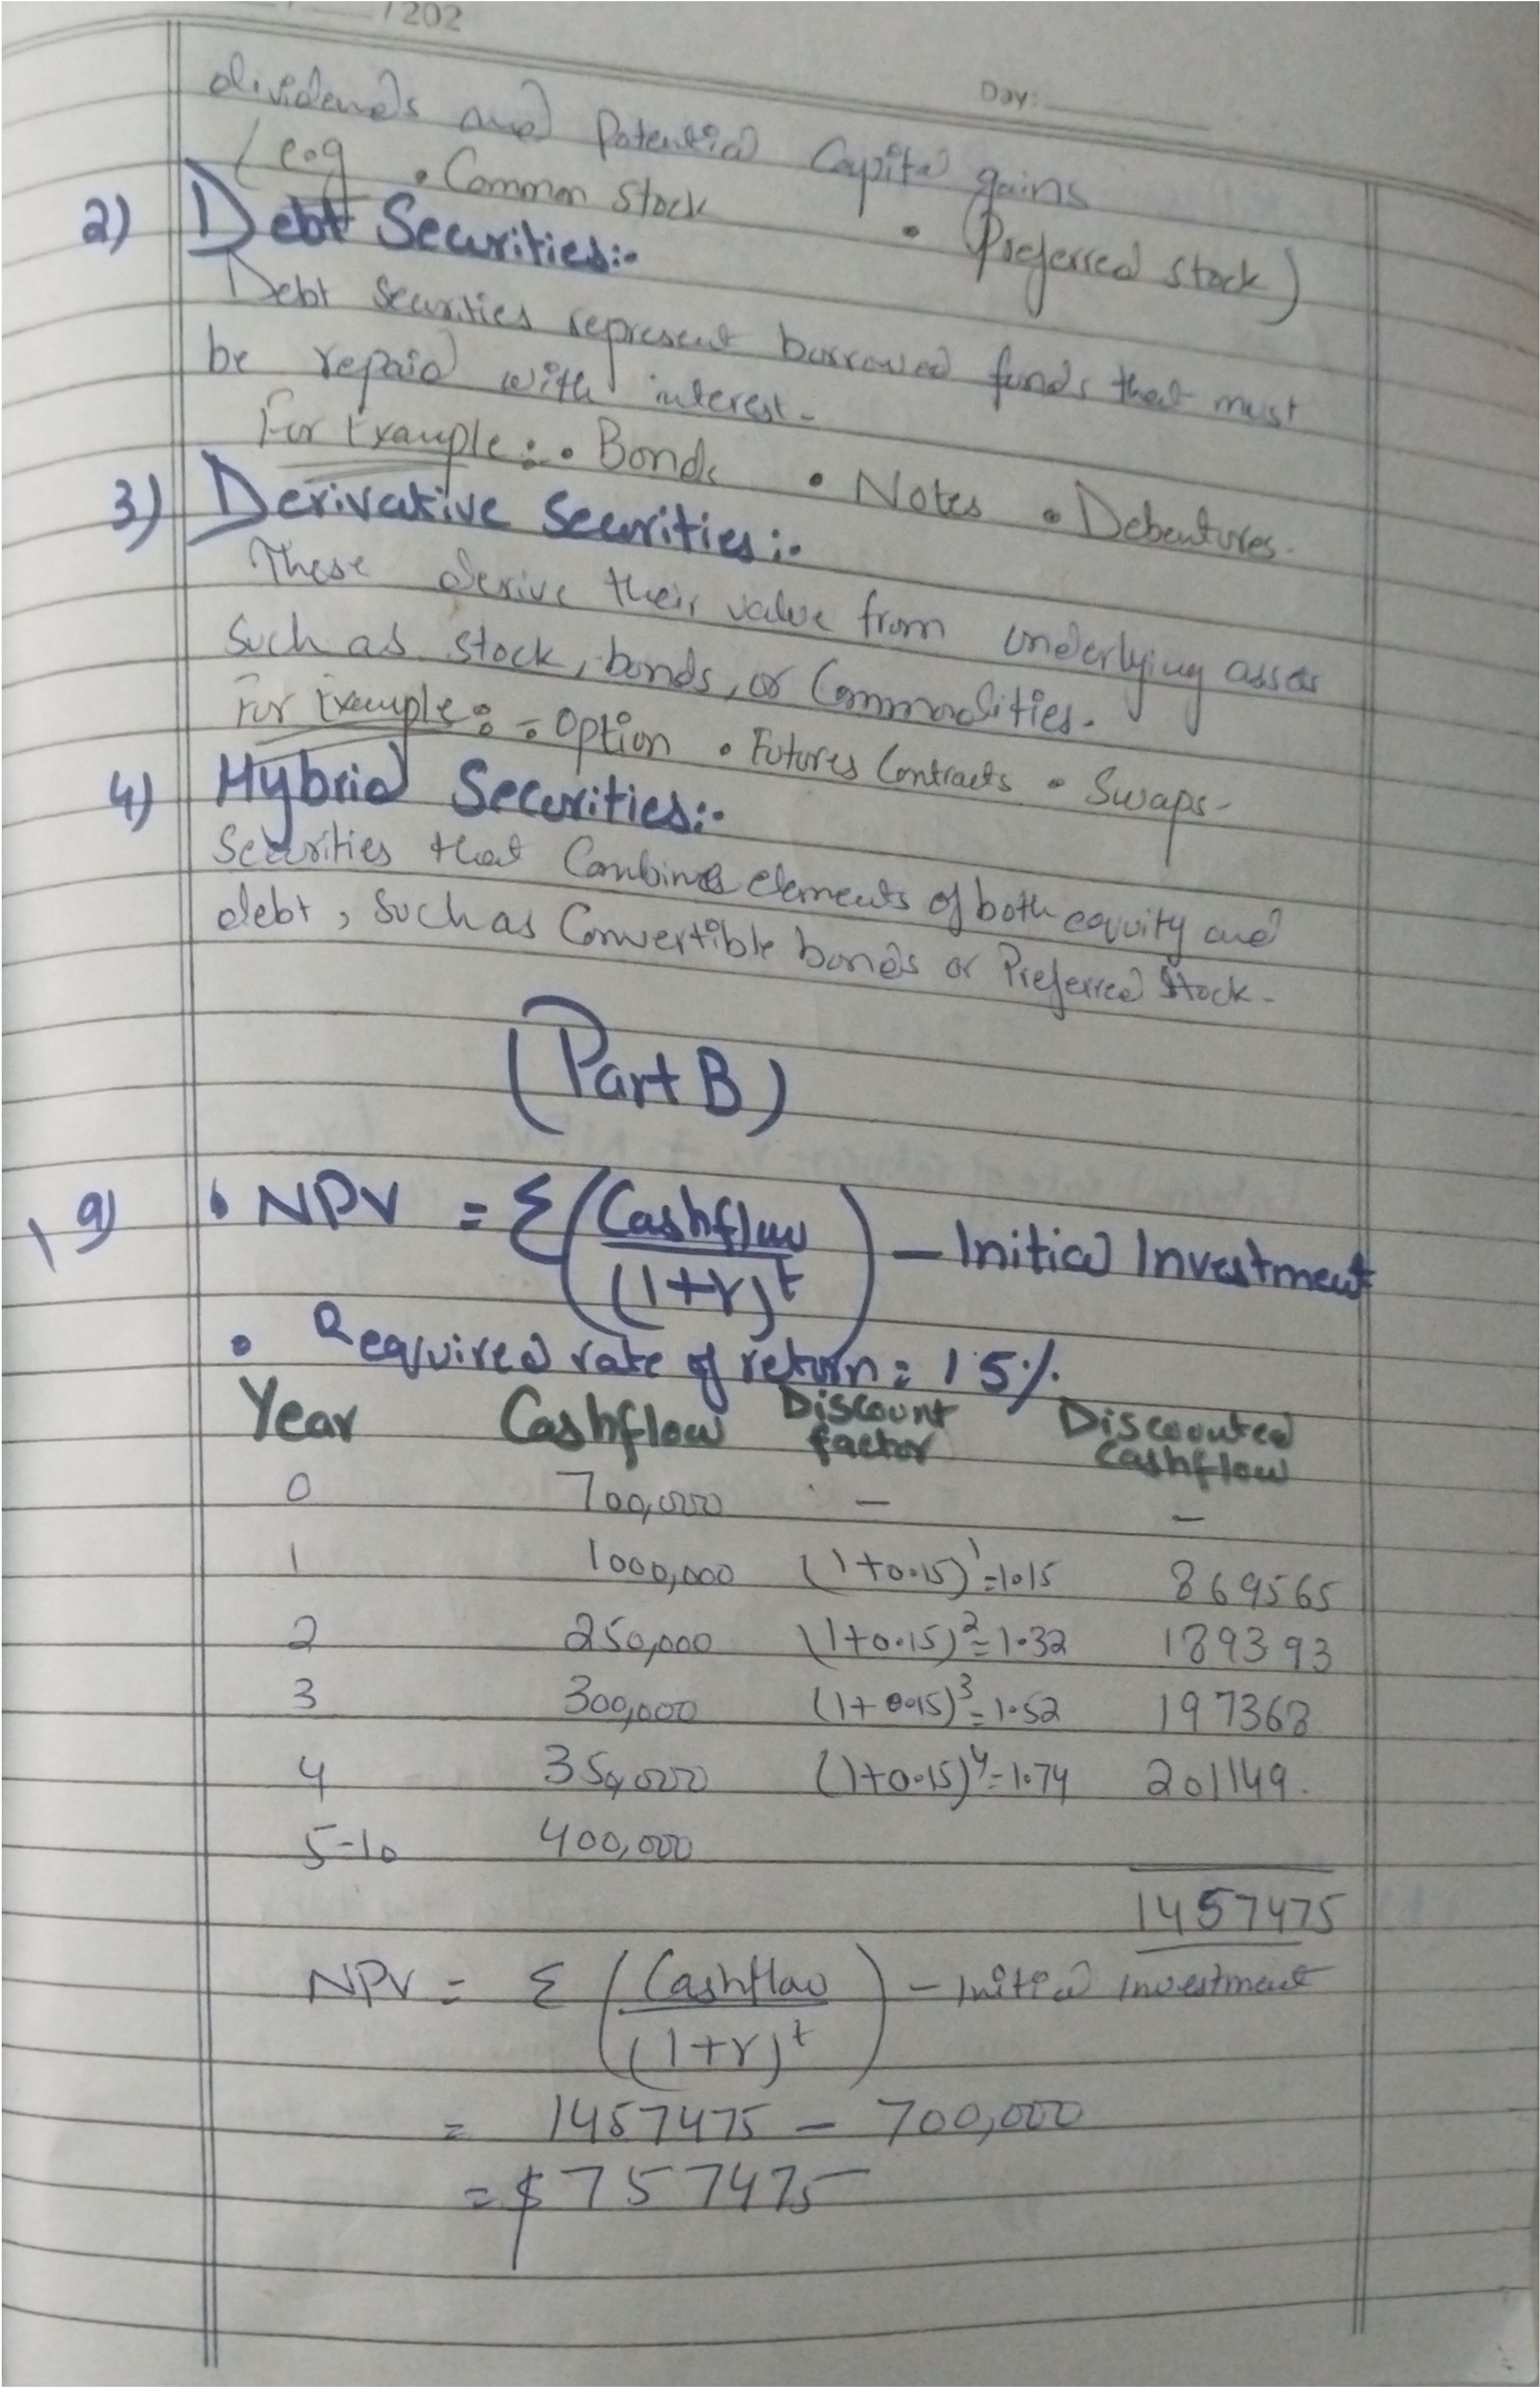 /202
Day:
dividends and Potential Capital gains
(e.g • Common Stock • Preferred stock)
2) Debt Securities:-
Debt Securities represent borrowed funds that must
be repaid with interest-
For Example:. • Bonds • Notes • Debentures.
3) Derivative Securities:-
These derive their value from underlying assets
Such as stock, bonds, or Commodities.
For Example: = Option • Futures Contracts • Swaps-
4) Hybrid Securities:-
Securities that Combines elements of both equity and
debt, Such as Convertible bonds or Preferred Stock-
(Part B)
• NPV = Σ (Cashflow / (1+r)^t) - Initial Investment
• Required rate of return = 15%
Year Cashflow Discount factor Discounted Cashflow
0 700,000 - -
1 1000,000 (1+0.15)^1=1.15 869565
2 250,000 (1+0.15)^2=1.32 189393
3 300,000 (1+0.15)^3=1.52 197368
4 350,000 (1+0.15)^4=1.74 201149.
5-10 400,000
1457475
NPV = Σ (Cashflow / (1+r)^t) - Initial Investment
= 1457475 - 700,000
= $757475